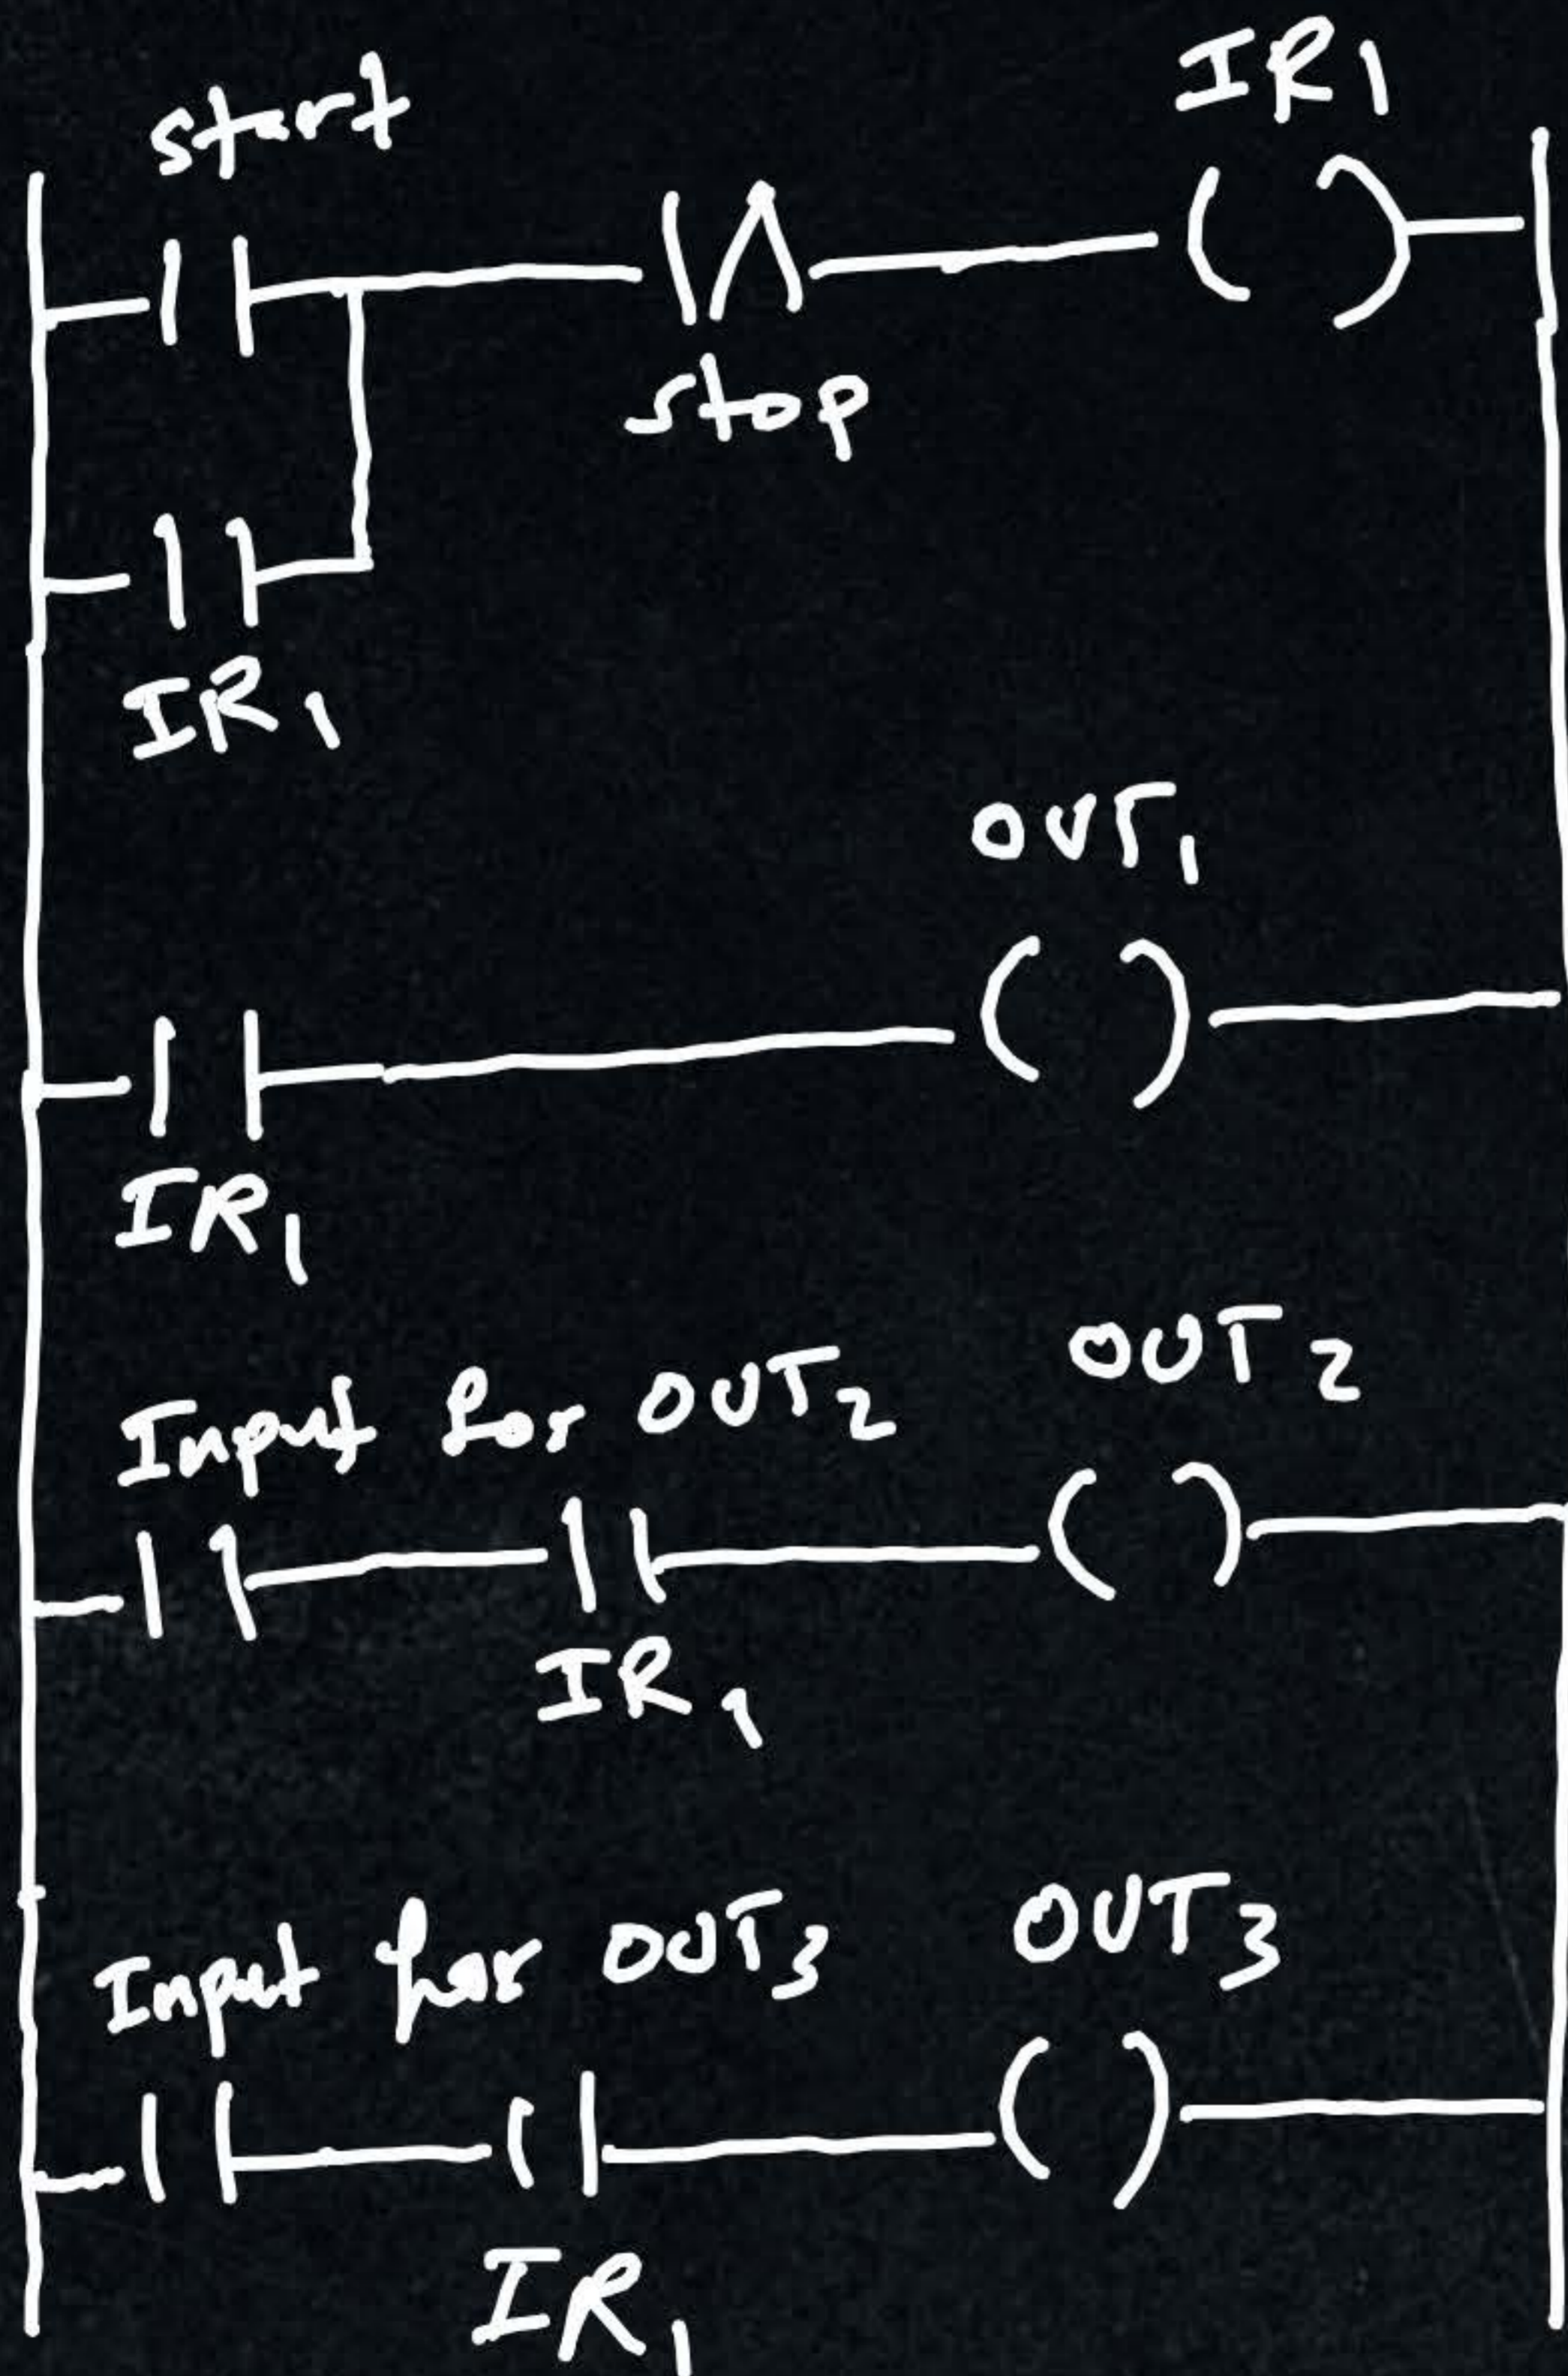 start
IR1
stop
IR1
OUT1
IR1
Input for OUT2
OUT2
IR1
Input for OUT3
OUT3
IR1